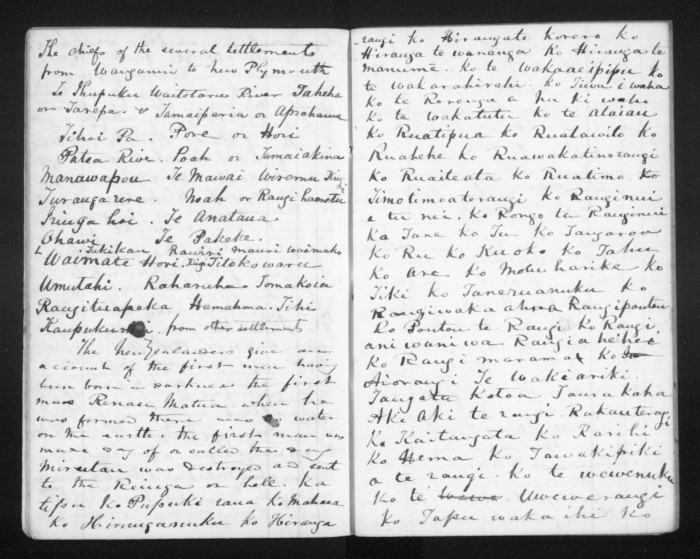 The chiefs of the several settlements
from Wanganui to New Plymouth
Te Ihupuku Waitotara River Taheke
or Tarepa. & Tamaiparia or Aprahama
Tihoi Pa. Pore or Hori
Patea River. Poah or Tumaiakina
Manawapou Te Mawai Wiremu Kingi
Turangarere. Noah or Rangihaeata
Inuga hoi. Te Anataua
Ohawi Te Pakeke.
Tukikau Rawiri mauri waimako
Waimate Hori. Kingi Titokowaru
Umutahi. Kaharuha Tomakoia
Rangituapeka Hamahona Tihi
from other settlements
The New Zealanders give an
account of the first men having
been born in darkness the first
man Renau Matua when he
was formed there was no water
on the earth. the first man was
made day of or called the day
was destroyed and sent
to the Reinga or hole. Ka
tipu ko Pupuki rana ko Mahara
ko Hiranganuku ko Hiranga
rangi ko Hirangate Korero ko
Hiranga te wananga ko Hiranga te
manumē. ko te wakaaipipu ko
te wakarahirahi. ko Tiwai waha
ko te Rorenga a hu ki
ko te wakatutu ko te alaiau
ko Ruatipua ko Ruatawito ko
Ruahehe ko Ruawakatinorangi
ko Ruaiteata ko Ruatimo ko
Timotimoatorangi ko Ranginui
e tu nei. ko Rongo te Ranginui
Ka Tane ko Tu ko Tangaroa
ko Ru ko Kuoko ko Tahu
ko Are ko Motuharike ko
Tiki ko Taneruanuku ko
Rangiwaka Rangipoutou
Ko Poutou te Rangi ko Rangi
ani waniwa Rangia hehei
ko Rangi marama ko
Aiorangi Te Wakiariki.
Tangata Kotoa Taurukaha
Aki Aki te rangi. Rakauterangi
ko Kaitangata ko Karihi
ko Hema ko Tawakipiki
a te rangi. ko te wewenuku
ko te Uwewerangi
ko Tapu waka ihi ko